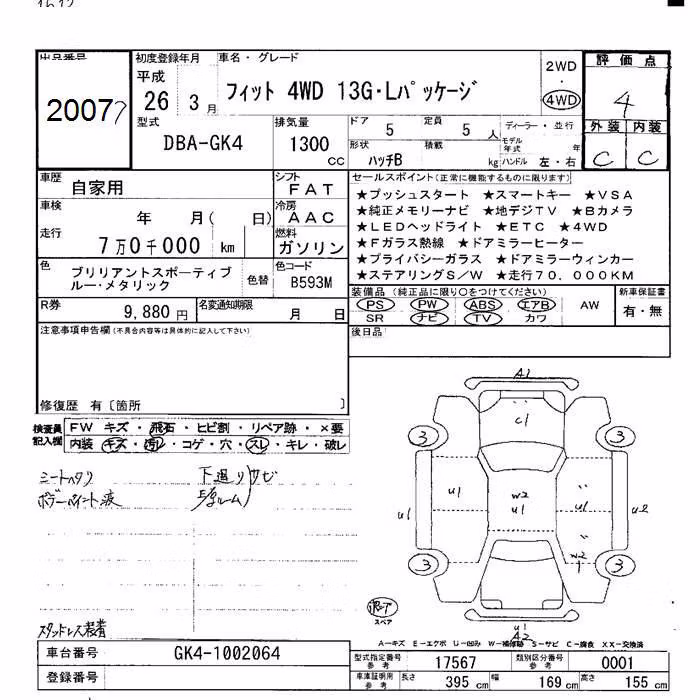 出品番号
20077
初度登録年月
平成
26 3月
車名・グレード
フィット 4WD 13G・Lパッケージ
2WD
・
4WD
評価点
4
外装 内装
C C
型式
DBA-GK4
排気量
1300
CC
ドア
5
定員
5人
ディーラー・並行
形状
ハッチB
積載
kg
モデル年式
年
ハンドル 左・右
車歴
自家用
シフト
FAT
車検
年 月( 日)
冷房
AAC
走行
7万0千000 km
燃料
ガソリン
色
ブリリアントスポーティブ
ルー・メタリック
色替
色コード
B593M
R券
9,880円
名変通知期限
月 日
セールスポイント(正常に機能するものに限ります)
★プッシュスタート ★スマートキー ★VSA
★純正メモリーナビ ★地デジTV ★Bカメラ
★LEDヘッドライト ★ETC ★4WD
★Fガラス熱線 ★ドアミラーヒーター
★プライバシーガラス ★ドアミラーウィンカー
★ステアリングS/W ★走行70,000KM
装備品(純正品に限り○をつけてください)
PS PW ABS エアB AW
SR ナビ TV カワ
新車保証書
有・無
注意事項申告欄(不具合内容等は具体的に記入して下さい)
後日品
修復歴 有〔箇所 〕
検査員
記入欄
FW キズ・飛石・ヒビ割・リペア跡・×要
内装 キズ・汚レ・コゲ・穴・スレ・キレ・破レ
シートヘタリ
下廻りサビ
ルーム
スタッドレス装着
A1
C1
3 3
U1 U1 W2 U1 U1 U2
W2
3 3
スペア
U1
A2
A－キズ E－エクボ U－凹み W－補修跡 S－サビ C－腐食 XX－交換済
車台番号
GK4-1002064
登録番号
型式指定番号
参考
17567
類別区分番号
参考
0001
車庫証明用
参考
長さ 395 cm 幅 169 cm 高さ 155 cm